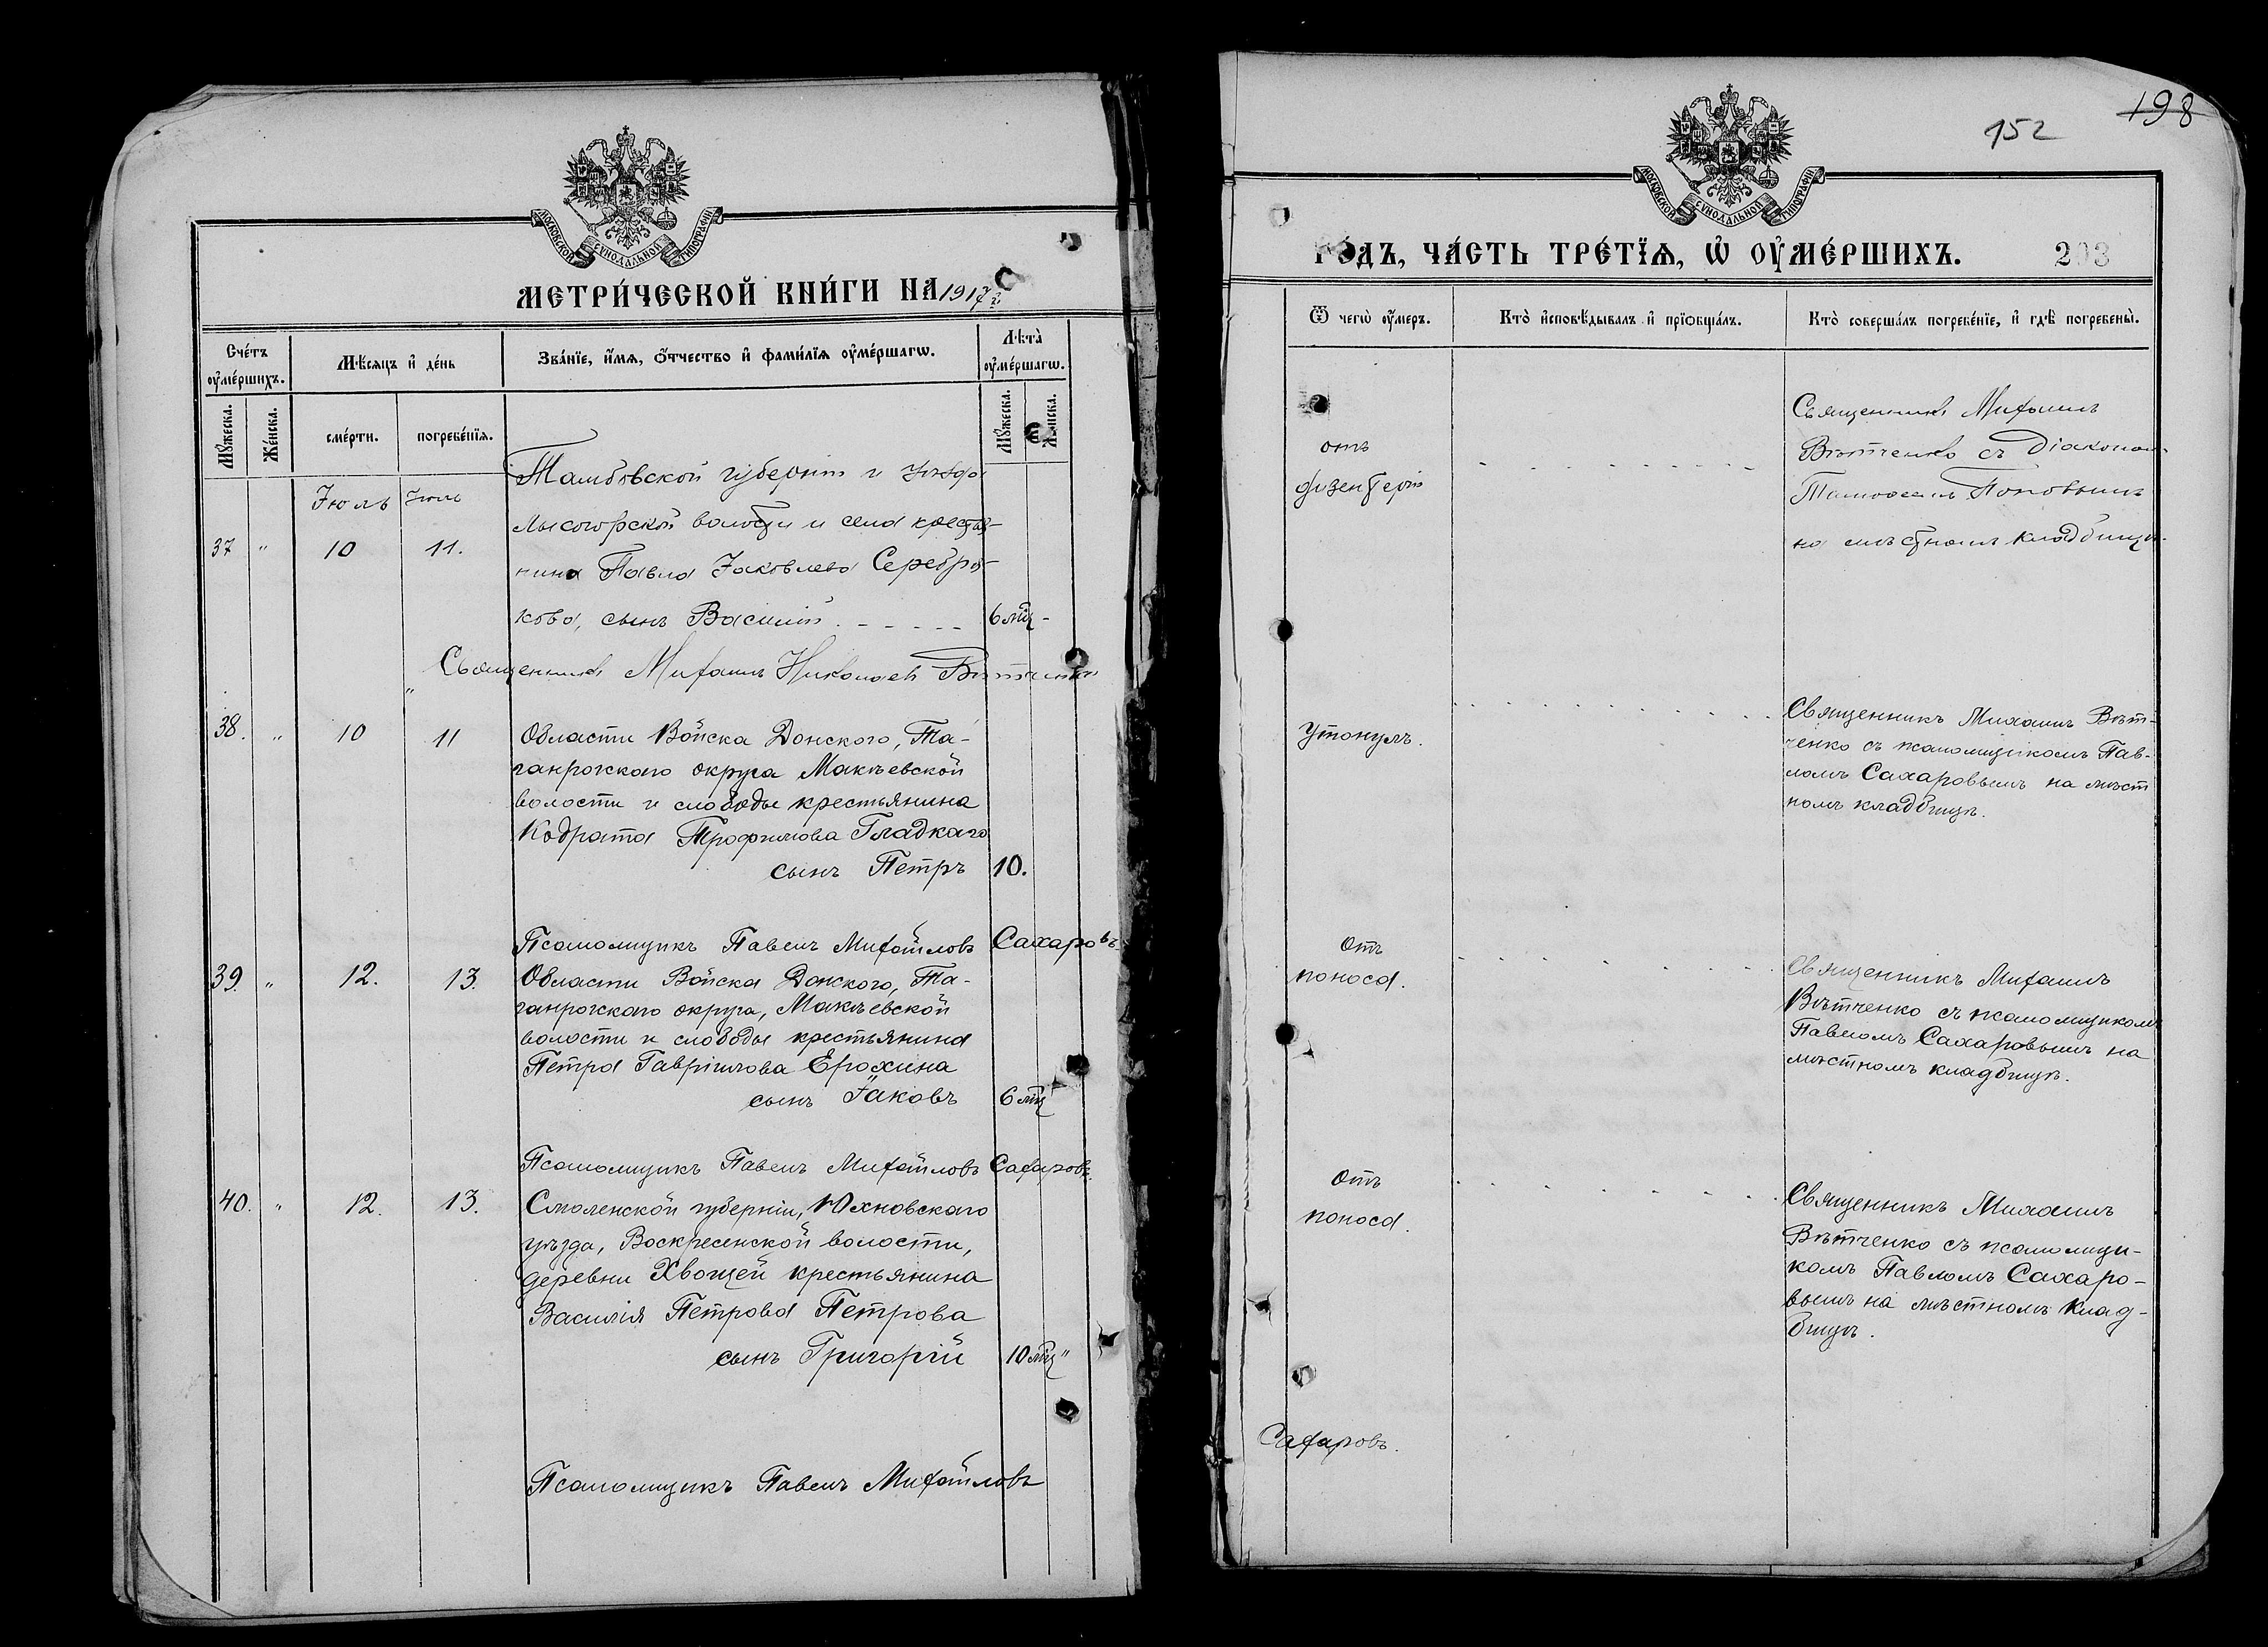 МОСКОВСКОЙ СѴНОДАЛЬНОЙ ТИПОГРАФІИ
МЕТРИ́ЧЕСКОЙ КНИ́ГИ НА 1917 г.
Сче́тъ оу҆ме́ршихъ.
Мѣ́сяцъ и҆ де́нь
Зва́нїе, и҆́мя, ѻ҆́тчество и҆ фами́лїя оу҆ме́ршагѡ.
Лѣ́та оу҆ме́ршагѡ.
Мꙋ́жеска.
Же́нска.
сме́рти.
погребе́нїя.
Мꙋ́жеска.
Же́нска.
Іюль Іюль
37 " 10 11.
Тамбовской губерніи и уѣзда
Лысогорской волости и села крестья-
нина Павла Іаковлева Серебря-
кова, сынъ Василій - - - - - 6 мц -
Священникъ Михаилъ Николаевъ Вѣтченко
38. " 10 11
Области Войска Донского, Та-
ганрогскаго округа Макѣевской
волости и слободы крестьянина
Кодрата Трофимова Гладкаго
сынъ Петръ 10.
Псаломщикъ Павелъ Михайловъ Сахаровъ
39. " 12. 13.
Области Войска Донского, Та-
ганрогскаго округа, Макѣевской
волости и слободы крестьянина
Петра Гавріилова Ерохина
сынъ Іаковъ 6 мц
Псаломщикъ Павелъ Михайловъ Сахаровъ.
40. " 12. 13.
Смоленской губерніи, Юхновскаго
уѣзда, Воскресенской волости,
деревни Хвощей крестьянина
Василія Петрова Петрова
сынъ Григорій 10 мц "
Псаломщикъ Павелъ Михайловъ
198
152
МОСКОВСКОЙ СѴНОДАЛЬНОЙ ТИПОГРАФІИ
ГО́ДЪ, ЧА́СТЬ ТРЕ́ТЇѦ, Ѡ҆ ОУ҆МЕ́РШИХЪ.
203
Ѿ чегѡ̀ оу҆́меръ.
Кто̀ и҆сповѣ́дывалъ и҆ прїѻбща́лъ.
Кто̀ соверша́лъ погребе́нїе, и҆ гдѣ̀ погребены̀.
отъ
дизентеріи
Священникъ Михаилъ
Вѣтченко съ Діакономъ
Поповымъ
на мѣстномъ кладбищѣ.
Утонулъ.
Священникъ Михаилъ Вѣт-
ченко съ псаломщикомъ Пав-
ломъ Сахаровымъ на мѣст
номъ кладбищѣ.
Отъ
поноса.
Священникъ Михаилъ
Вѣтченко съ псаломщикомъ
Павломъ Сахаровымъ на
мѣстномъ кладбищѣ.
Отъ
поноса.
Священникъ Михаилъ
Вѣтченко съ псаломщи-
комъ Павломъ Сахаро-
вымъ на мѣстномъ клад-
бищѣ.
Сахаровъ.